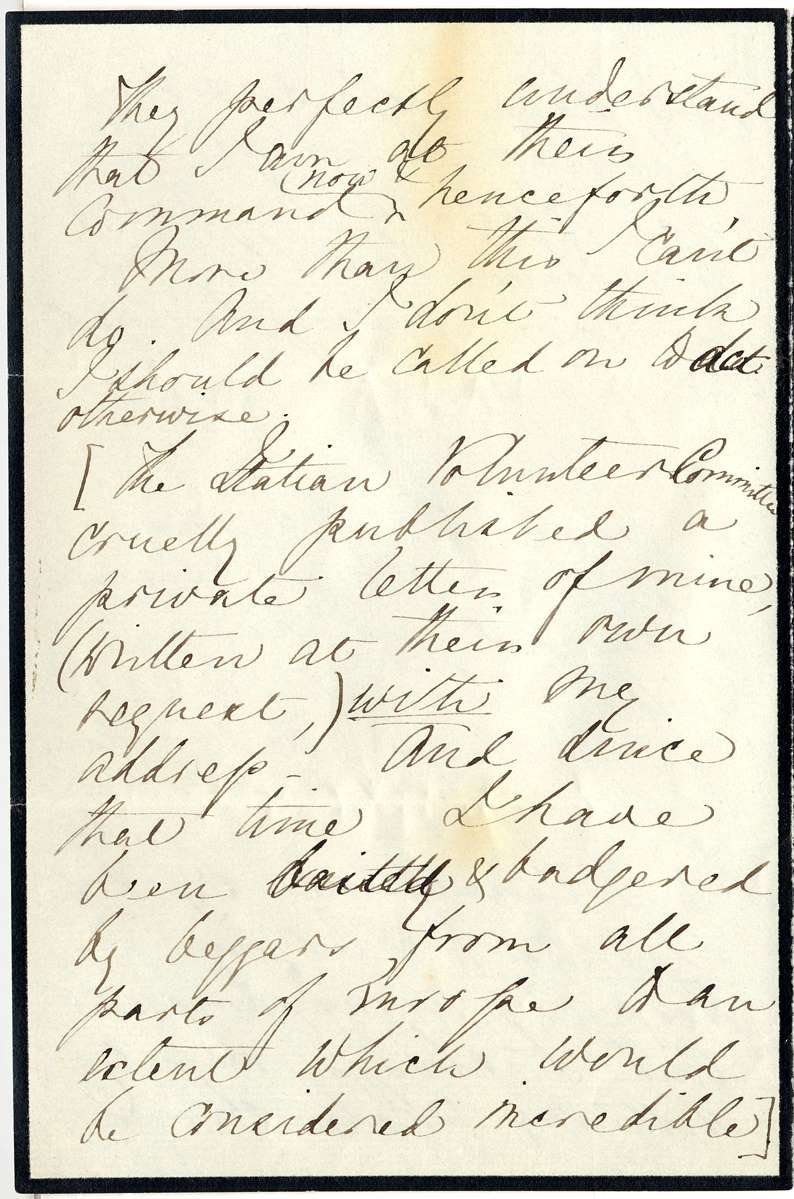 They perfectly understand
that I am at their
command (now & henceforth,
More than this I can't
do. And I don't think
I should be called on to act
otherwise.
[The Italian Volunteer Committee
cruelly published a
private letter of mine,
(written at their own
request,) with my
address - And since
that time I have
been baited & badgered
by beggars from all
parts of Europe to an
extent which would
be considered incredible]